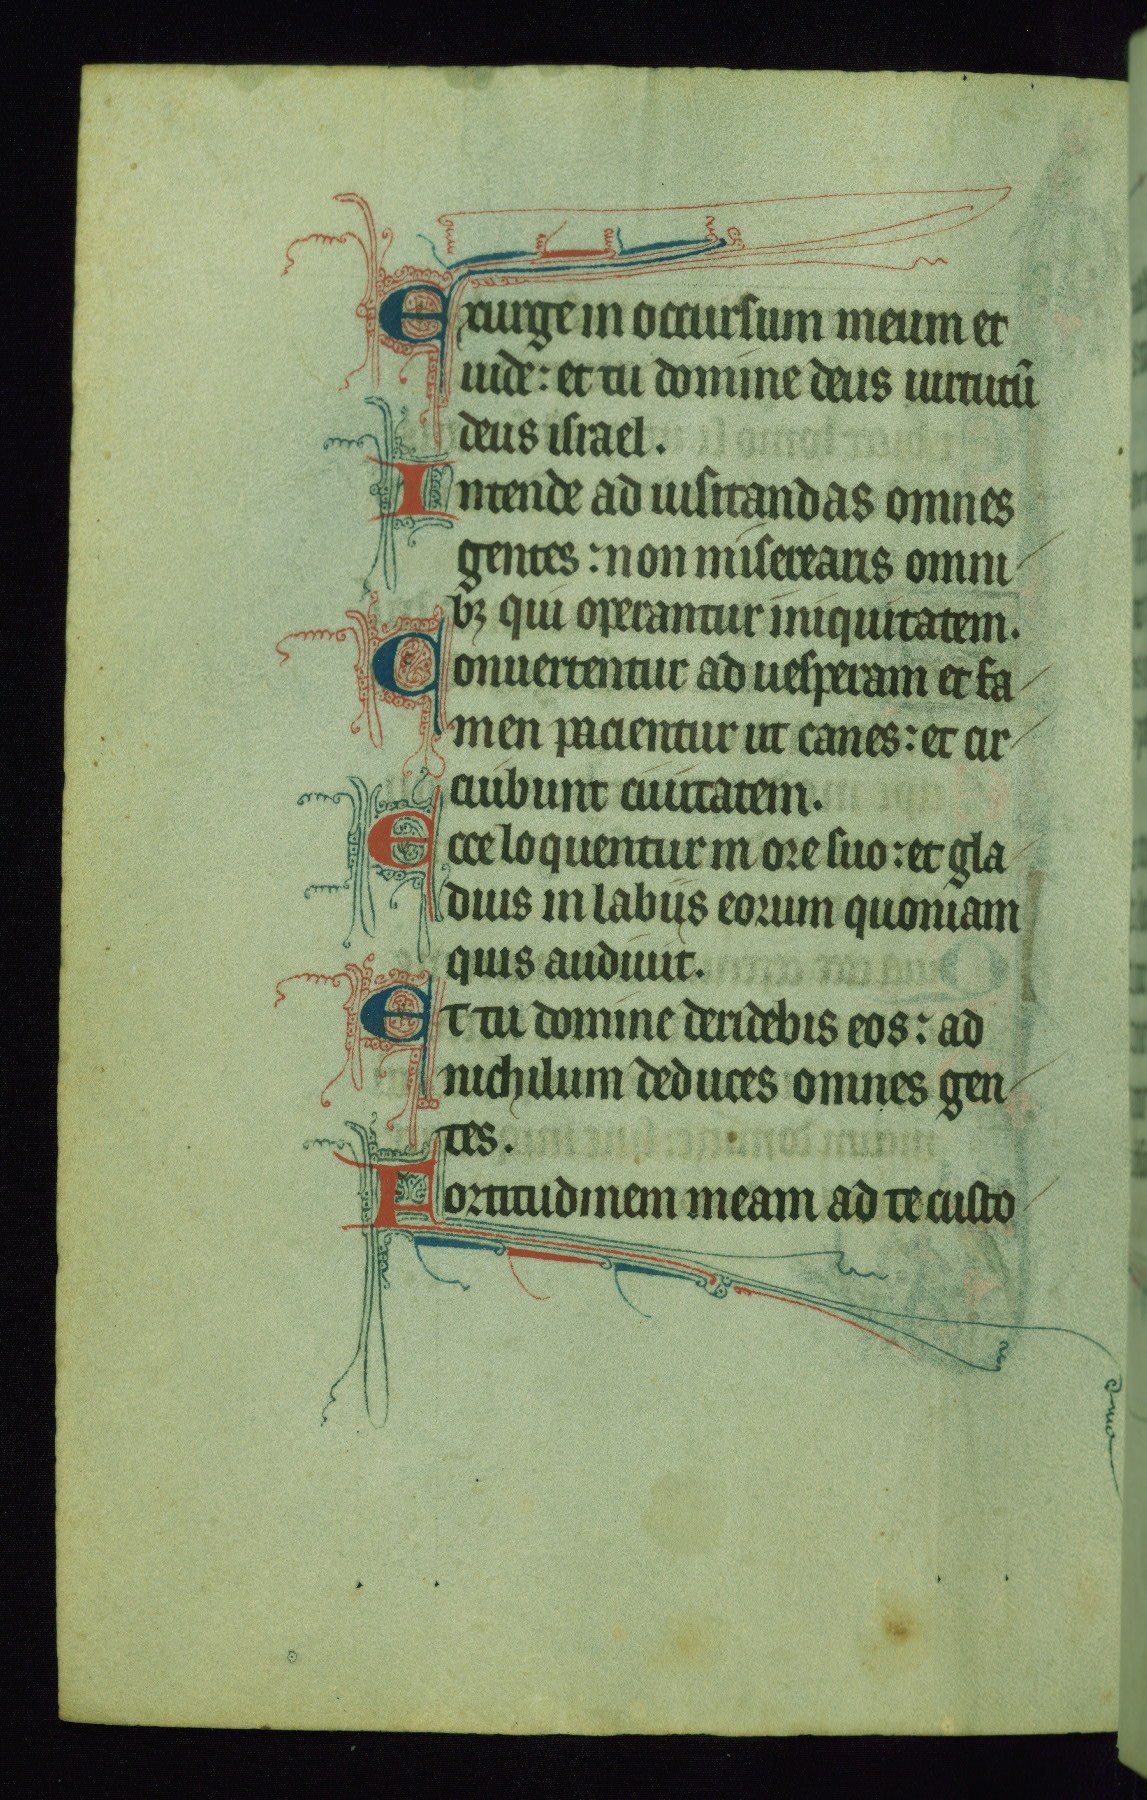 Exurge in occursum meum et
uide: et tu domine deus uirtutū
deus israel.
Intende ad uisitandas omnes
gentes: non miserearis omni
bꝫ qui operantur iniquitatem.
Conuertentur ad uesperam et fa
men pacientur ut canes: et cir
cuibunt ciuitatem.
Ecce loquentur in ore suo: et gla
dius in labiis eorum quoniam
quis audiuit.
Et tu domine deridebis eos: ad
nichilum deduces omnes gen
tes.
Fortitudinem meam ad te custo